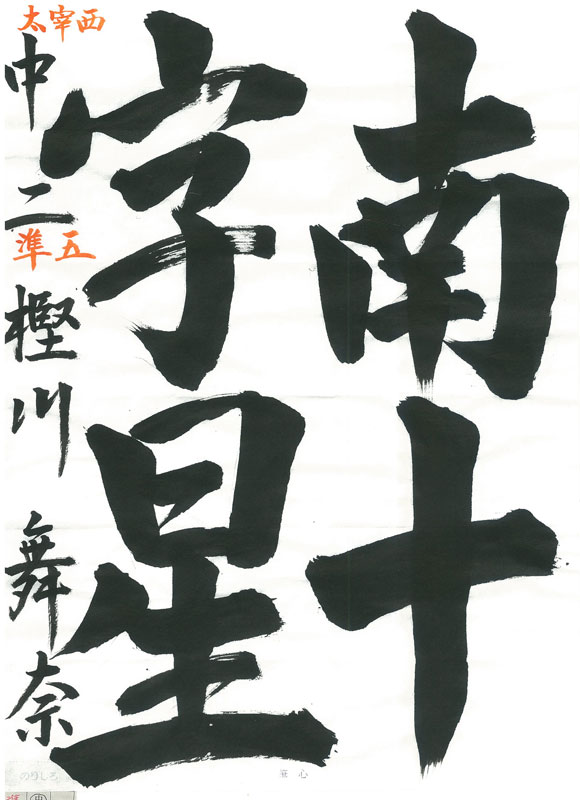 南十
字星
太宰西
中二
準五
樫川 舞奈
のりしろ